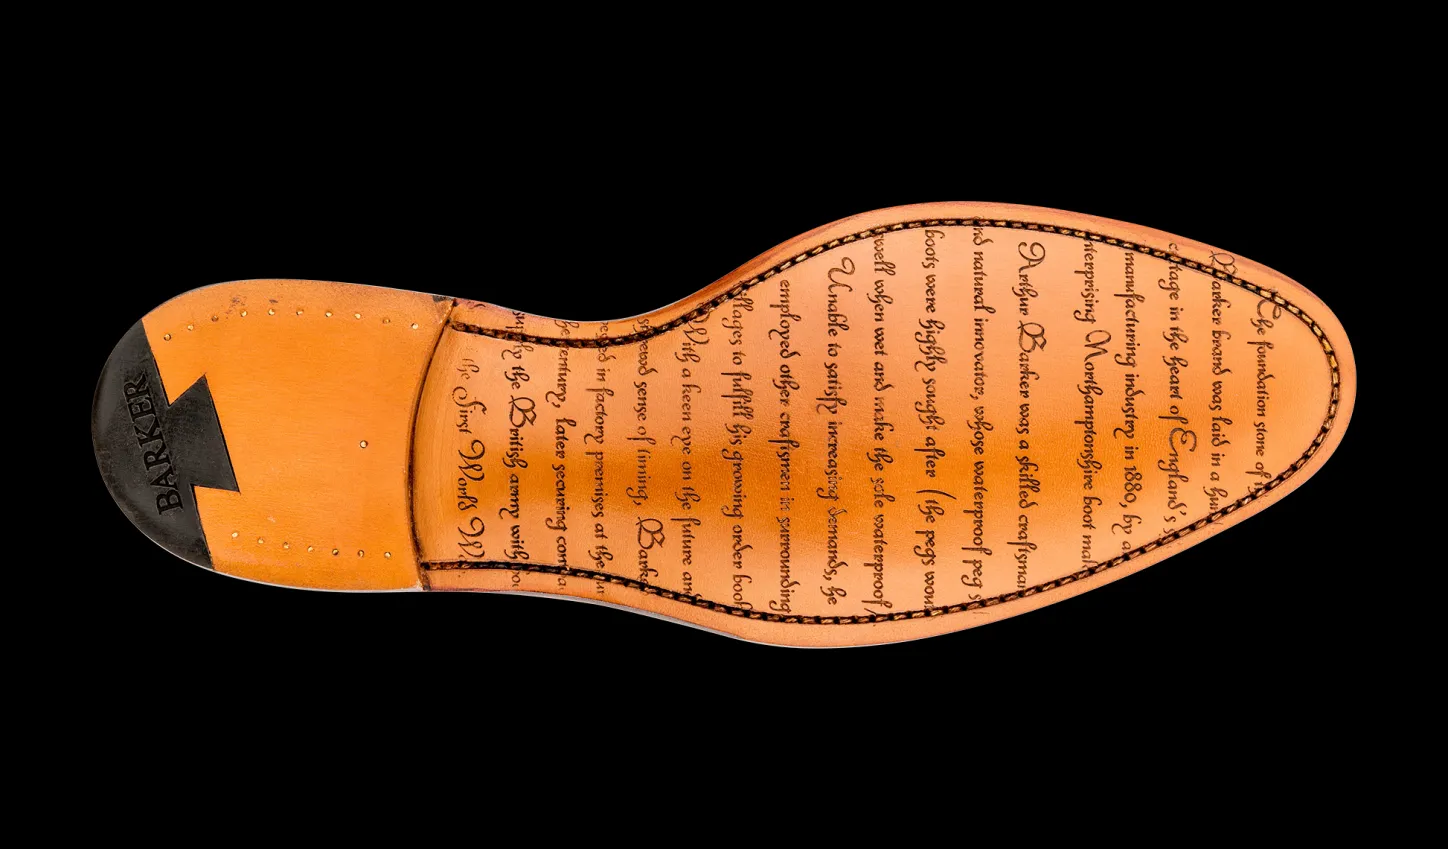 The foundation stone of
Barker brand was laid in a
cottage in the heart of England's
manufacturing industry in 1880, by a
nterprising Northamptonshire boot ma
Arthur Barker was a skilled craftsma
nd natural innovator, whose waterproof peg s
boots were highly sought after (the pegs wou
well when wet and make the sole waterproof
Unable to satisfy increasing demands, he
employed other craftsmen in surrounding
illages to fulfill his growing order boo
With a keen eye on the future an
shrewd sense of timing, Bark
in factory premises at the
century, later securing
the British army with
the First World W
BARKER